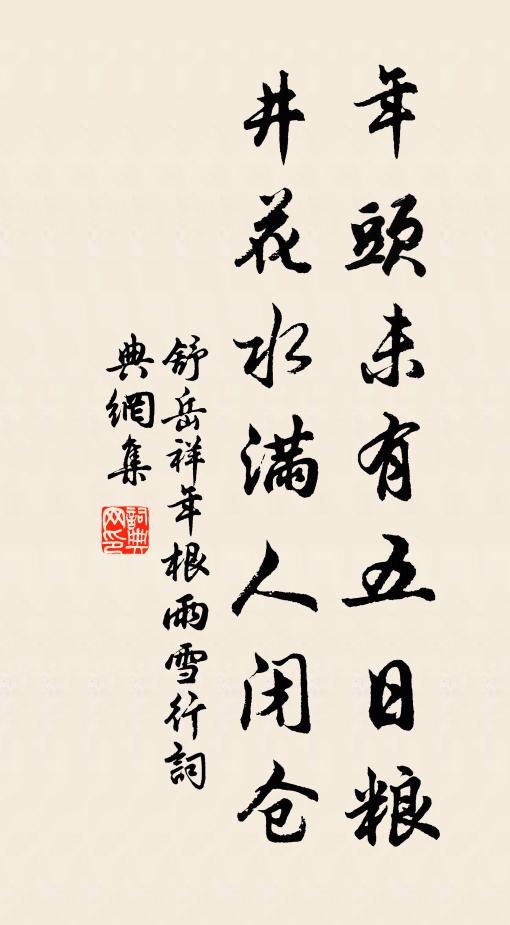 年頭未有五日粮
井花水满人闭仓
舒岳祥年根雨雪行詞
典網集
詞典网印